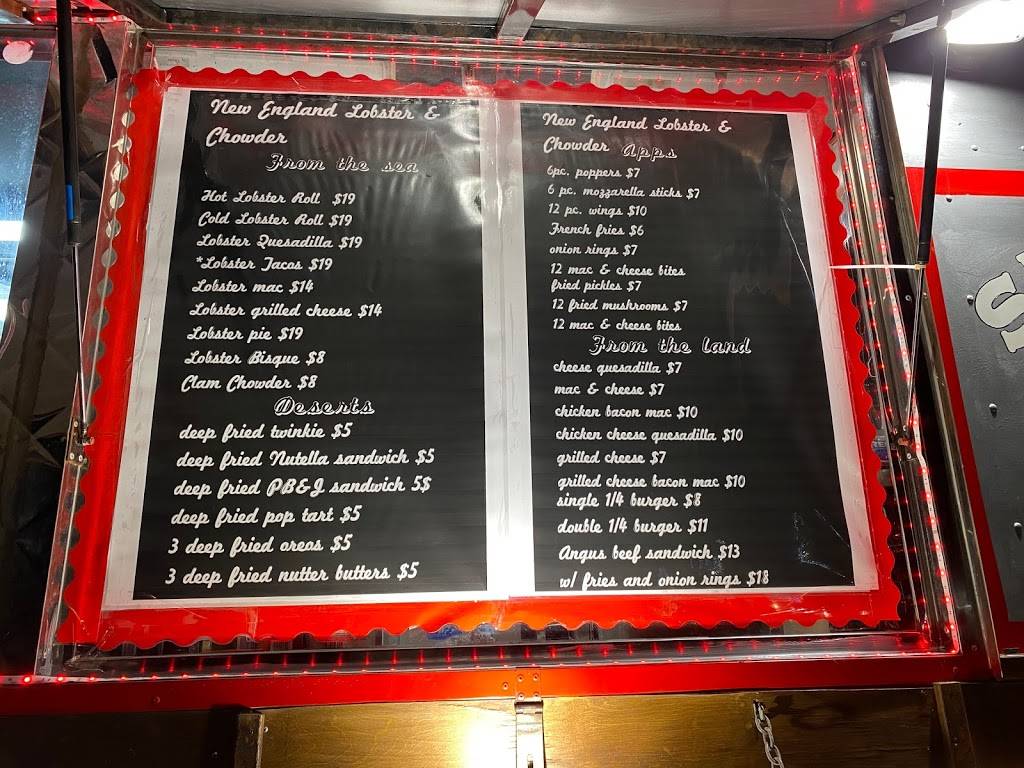 New England Lobster &
Chowder
From the sea
Hot Lobster Roll $19
Cold Lobster Roll $19
Lobster Quesadilla $19
*Lobster Tacos $19
Lobster mac $14
Lobster grilled cheese $14
Lobster pie $19
Lobster Bisque $8
Clam Chowder $8
Deserts
deep fried twinkie $5
deep fried Nutella sandwich $5
deep fried PB&J sandwich 5$
deep fried pop tart $5
3 deep fried oreos $5
3 deep fried nutter butters $5
New England Lobster &
Chowder Apps
6pc. poppers $7
6 pc. mozzarella sticks $7
12 pc. wings $10
French fries $6
onion rings $7
12 mac & cheese bites
fried pickles $7
12 fried mushrooms $7
12 mac & cheese bites
From the land
cheese quesadilla $7
mac & cheese $7
chicken bacon mac $10
chicken cheese quesadilla $10
grilled cheese $7
grilled cheese bacon mac $10
single 1/4 burger $8
double 1/4 burger $11
Angus beef sandwich $13
w/ fries and onion rings $18